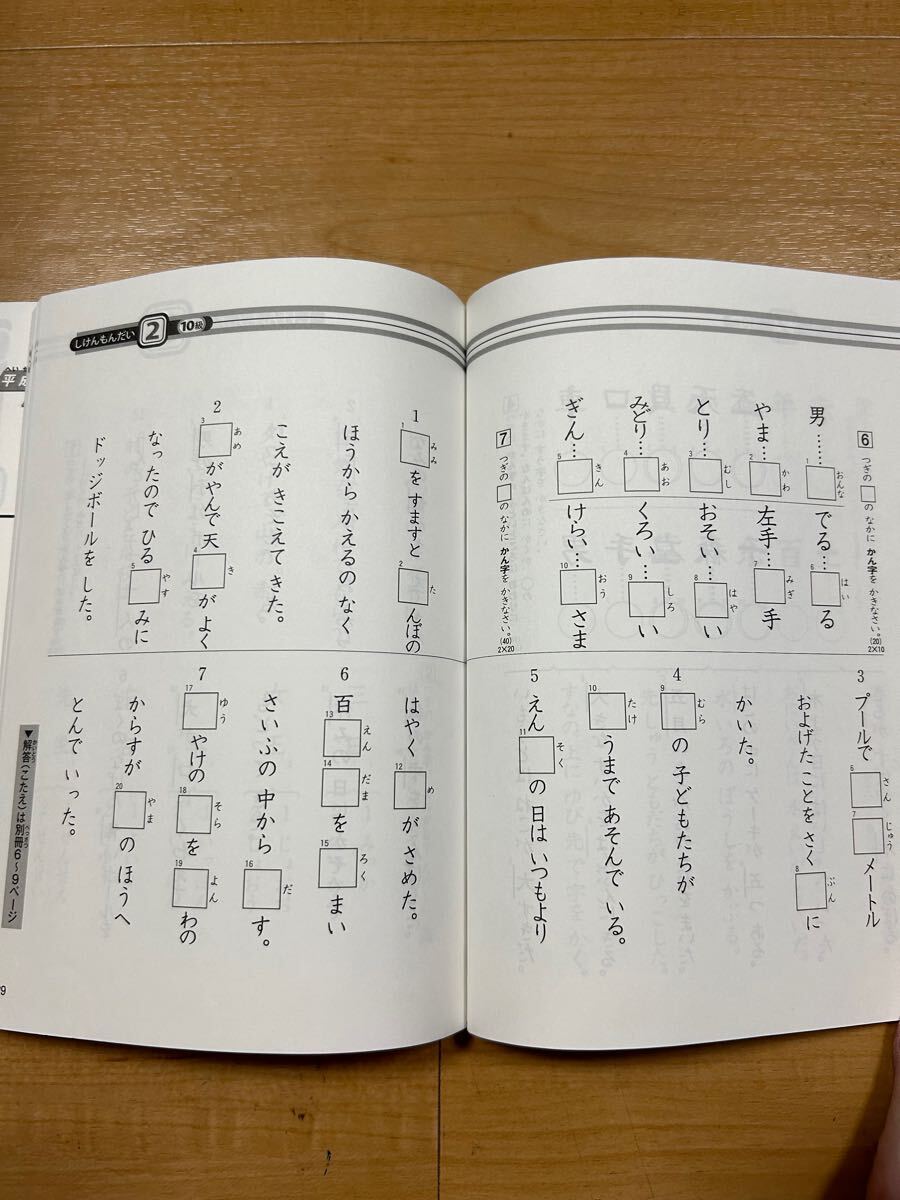 6 つぎの□の なかに かん字を かきなさい。(20) 2×10
男……□1 おんな
やま…□2 かわ
とり…□3 むし
みどり…□4 あお
ぎん…□5 きん
でる…□6 はい る
左手…□7 みぎ 手
おそい…□8 はや い
くろい…□9 しろ い
けらい…□10 おう さま
7 つぎの□の なかに かん字を かきなさい。(40) 2×20
1 □1 みみ を すますと □2 た んぼの
ほうから かえるの なく
こえが きこえて きた。
2 □3 あめ がやんで天□4 き が よく
なったので ひる□5 やす みに
ドッジボールを した。
3 プールで □6 さん □7 じゅう メートル
およげた ことを さく□8 ぶん に
かいた。
4 □9 むら の 子どもたちが
□10 たけ うまで あそんで いる。
5 えん□11 そく の 日は いつもより
はやく □12 め が さめた。
6 百□13 えん □14 だま を □15 ろく まい
さいふの 中から □16 だ す。
7 □17 ゆう やけの □18 そら を □19 よん わの
からすが □20 やま の ほうへ
とんで いった。
しけんもんだい 2 10級
▼解答(こたえ)は別冊6〜9ページ
かいとう
べっさつ
平成